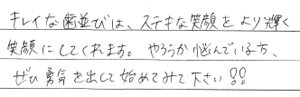 キレイな歯並びは、ステキな笑顔をより輝く
笑顔にしてくれます。やろうか悩んでいる方、
ぜひ勇気を出して始めてみて下さい!!